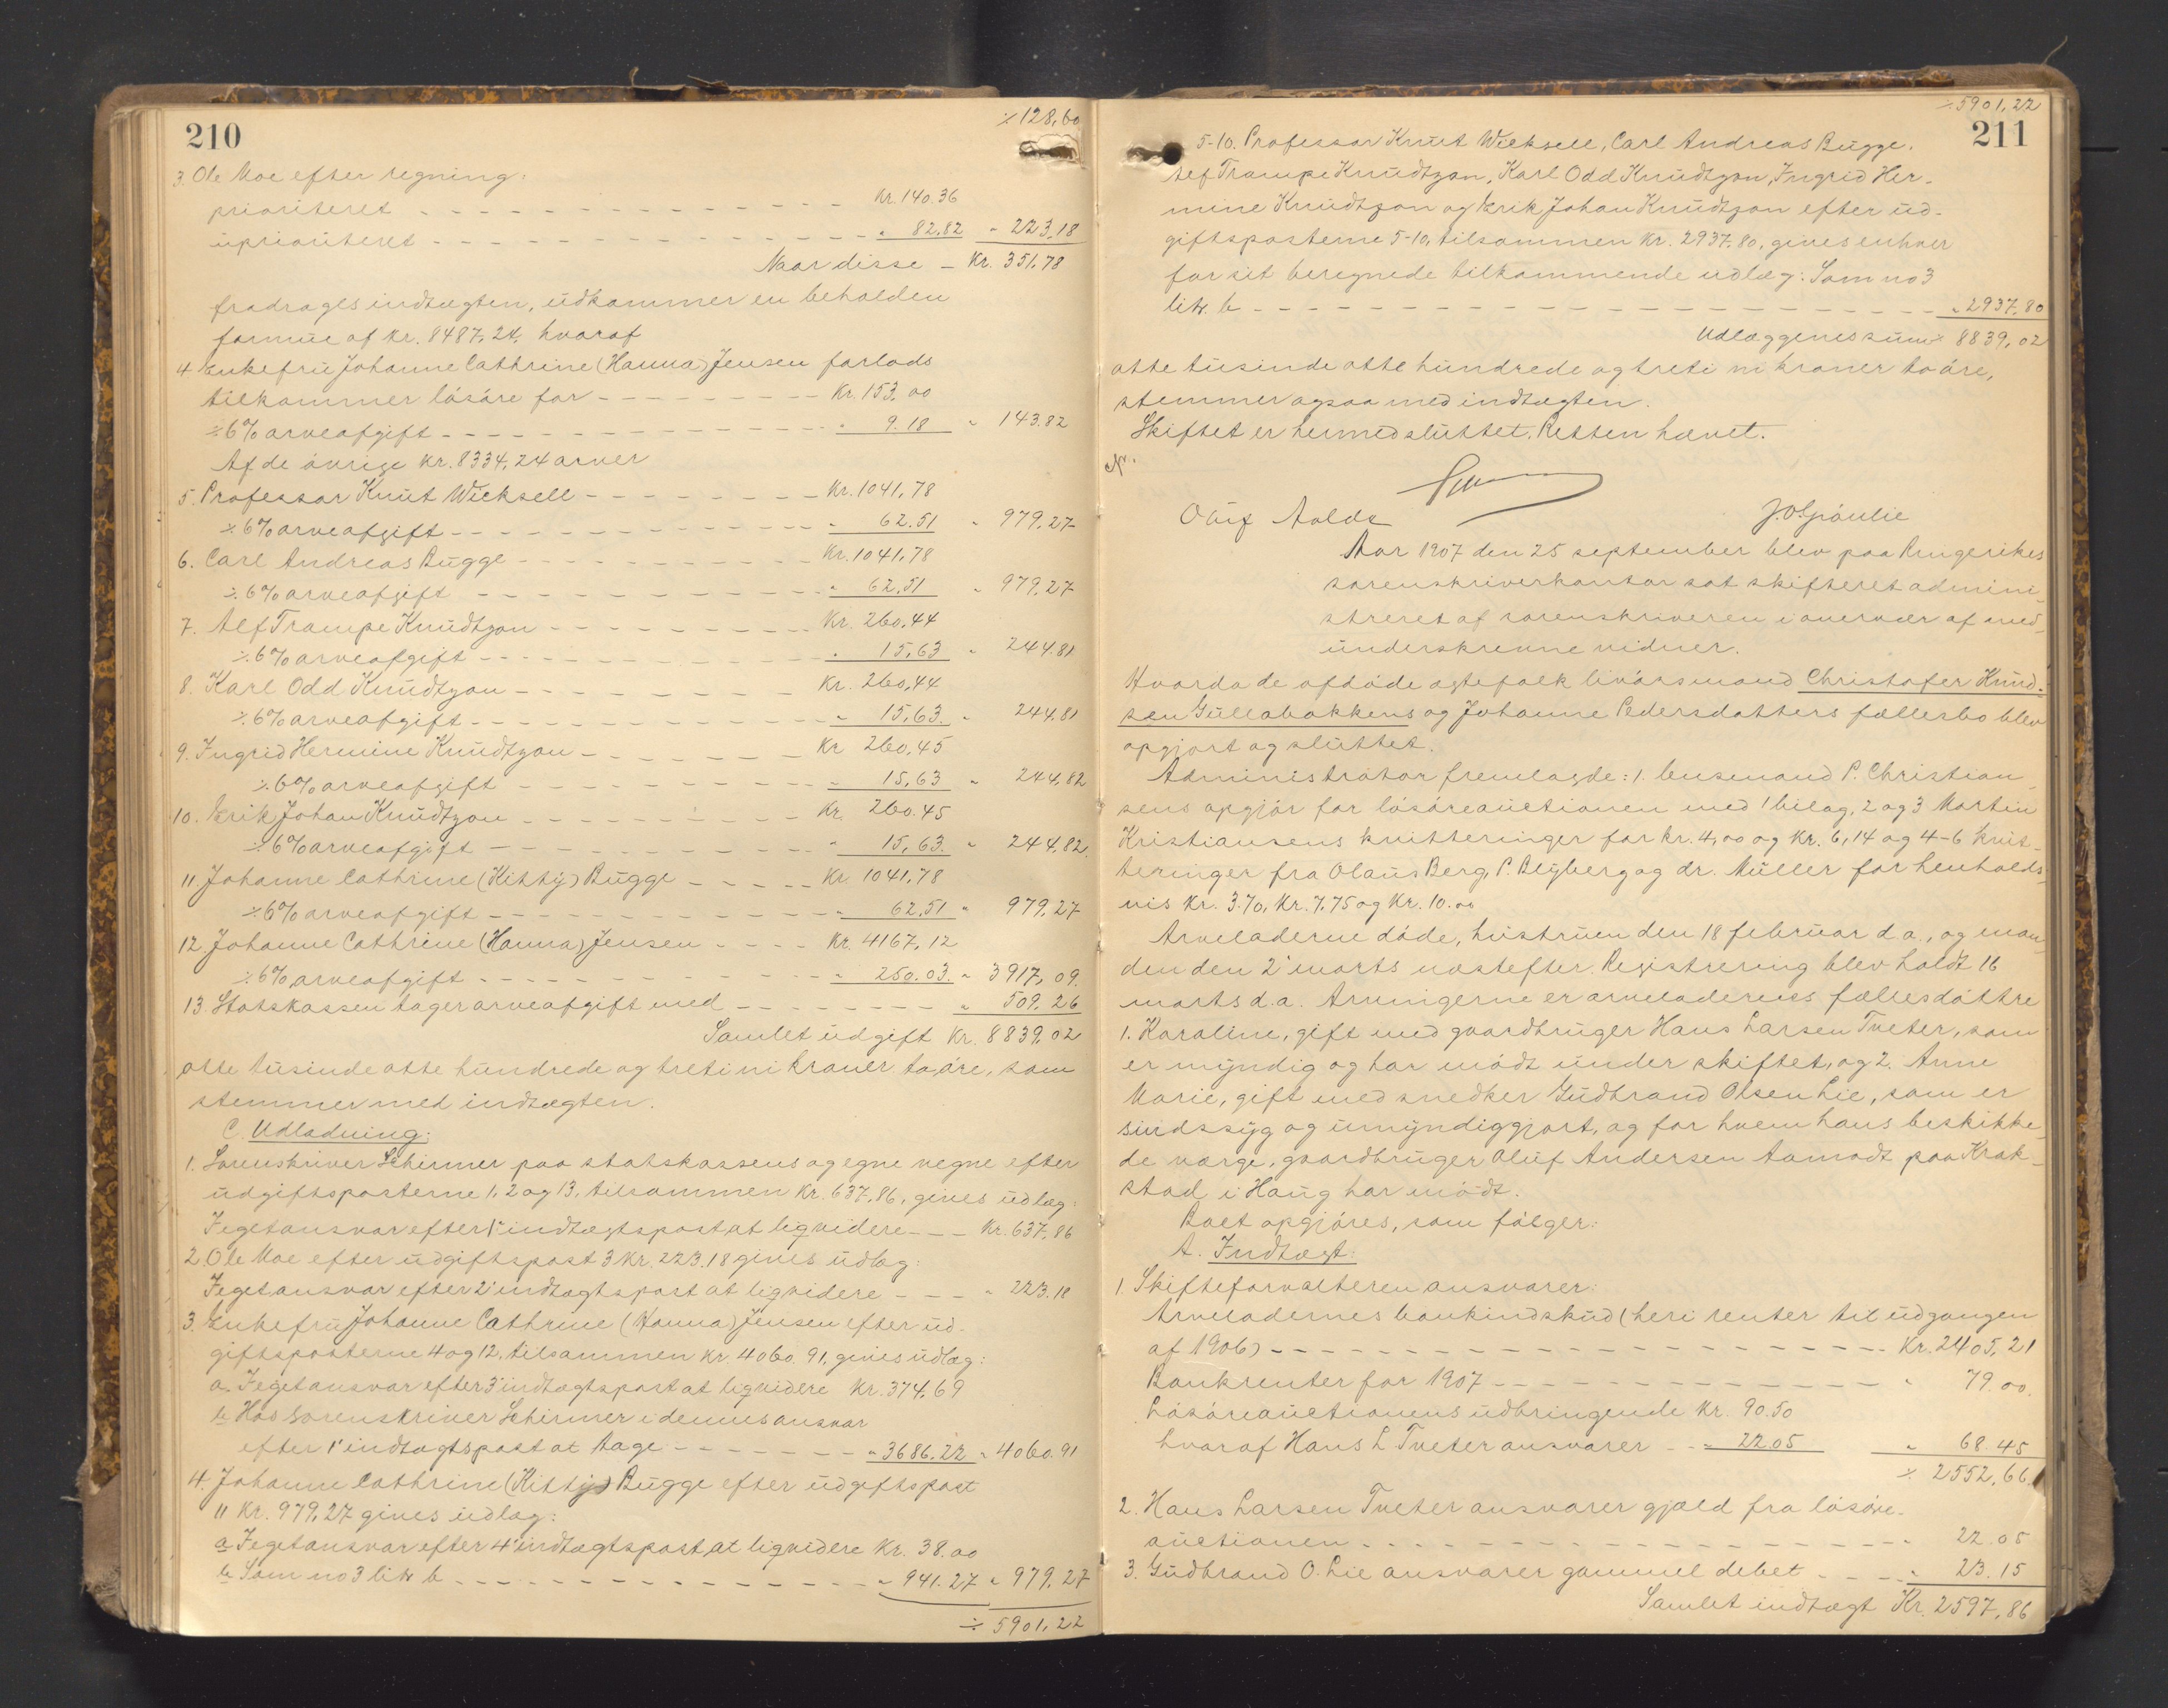 210
⁒ 128,60
3. Ole Moe efter regning:
prioriteret - - - - Kr. 140.36
uprioriteret - - - - " 82,82 " 223,18
Naar disse - Kr. 351,78
fradrages indtægten, udkommer en beholden
formue af kr. 8487,24, hvoraf
4. Enkefru Johanne Cathrine (Hanna) Jensen forlods
tilkommer løsøre for - - - - Kr. 153,00
⁒ 6% arveafgift - - - - " 9.18 " 143.82
Af de øvrige kr. 8334,24 arver
5. Professor Knut Wicksell - - - - Kr. 1041,78
⁒ 6% arveafgift - - - - " 62.51 " 979,27
6. Carl Andreas Bugge - - - - Kr. 1041,78
⁒ 6% arveafgift - - - - " 62,51 " 979,27
7. Alf Trampe Knudtzon - - - - Kr. 260,44
⁒ 6% arveafgift - - - - " 15,63 " 244.81
8. Karl Odd Knudtzon - - - - Kr. 260,44
⁒ 6% arveafgift - - - - " 15,63. " 244,81
9. Ingrid Hermine Knudtzon - - - - Kr 260,45
⁒ 6% arveafgift - - - - " 15,63 " 244,82
10. Erik Johan Knudtzon - - - - Kr. 260.45
⁒ 6% arveafgift - - - - " 15,63. " 244,82.
11 Johanne Cathrine (Kitty) Bugge - - - - Kr. 1041,78
⁒ 6% arveafgift - - - - " 62,51 " 979,27
12. Johanne Cathrine (Hanna) Jensen - - - - Kr. 4167,12
⁒ 6% arveafgift - - - - " 250.03. " 3917,09.
13. Statskassen tager arveafgift med - - - - " 509,26
Samlet udgift Kr. 8839,02
otte tusinde otte hundrede og treti ni kroner to øre, som
stemmer med indtægten.
C. Udlodning:
1. Sorenskriver Schirmer paa statskassens og egne vegne efter
udgiftsposterne 1, 2 og 13, tilsammen Kr. 637,86, gives udlæg:
I eget ansvar efter 1' indtægtspost, at liqvidere - - - Kr. 637,86
2. Ole Moe efter udgiftspost 3 Kr. 223.18 gives udlæg:
I eget ansvar efter 2' indtægtspost at liqvidere - - - " 223.18
3. Enkefru Johanne Cathrine (Hanna) Jensen efter ud-
giftsposterne 4 og 12, tilsammen kr 4060.91, gives udlæg:
a. I eget ansvar efter 3' indtægtspost at liqvidere Kr. 374,69
b Hos sorenskriver Schirmer i dennes ansvar
efter 1' indtægtspost at tage - - - - " 3686,22 " 4060.91
4. Johanne Cathrine (Kitty) Bugge efter udgiftspost
11 Kr. 979,27 gives udlæg:
a. I eget ansvar efter 4' indtægtspost, at liqvidere Kr. 38.00
b. Som no 3 litr b - - - - " 941.27 " 979,27
⁒ 5901,22
⁒ 5901,22
211
5-10. Professor Knut Wicksell, Carl Andreas Bugge.
Alf Trampe Knudtzon, Karl Odd Knudtzon, Ingrid Her-
mine Knudtzon og Erik Johan Knudtzon efter ud-
giftsposterne 5-10, tilsammen Kr. 2937.80, gives enhver
for sit beregnede tilkommende udlæg: Som no 3
litr. b - - - - " 2937,80
Udlæggenes sum ⁒ 8839,02
otte tusinde otte hundrede og treti ni kroner to øre,
stemmer ogsaa med indtægten.
Skiftet er hermed sluttet. Retten hævet.
Oluf Aalde
Aar 1907 den 25 september blev paa Ringerikes
sorenskriverkontor sat skifteret admini-
streret af sorenskriveren i overvær af med-
underskrevne vidner.
Hvorda de afdøde egtefolk livørsmand Christofer Knud-
sen Gullabakkens og Johanne Pedersdatters fællesbo blev
opgjort og sluttet.
Administrator fremlagde: 1. lensmand P. Christian-
sens opgjør for løsøreauctionen med 1 bilag, 2 og 3 Martin
Kristiansens kvitteringer for kr. 4,00 og Kr. 6,14 og 4-6 kvit-
teringer fra Olaus Berg, P. Blyberg og dr. Müller for henholds-
vis Kr. 3.70, Kr. 7,75 og Kr. 10.00
Arveladerne døde, hustruen den 18 februar d.a., og man-
den den 2' marts næstefter. Registrering blev holdt 16
marts d.a. Arvingerne er arveladernes fællesdøttre
1. Karoline, gift med gaardbruger Hans Larsen Tveter, som
er myndig og har mødt under skiftet, og 2. Anne
Marie, gift med snedker Gudbrand Olsen Lie, som er
sindssyg og umyndiggjort, og for hvem hans beskikke-
de værge, gaardbruger Oluf Andersen Aamodt paa Krak-
stad i Haug har mødt.
Boet opgjøres, som følger:
A. Indtægt:
1. Skifteforvalteren ansvarer:
Arveladernes bankindskud (heri renter til udgangen
af 1906) - - - - Kr. 2405,21
Bankrenter for 1907 - - - - " 79.00.
Løsøreauctionens udbringende Kr. 90.50
hvoraf Hans L Tveter ansvarer - - " 22.05 " 68.45
⁒ 2552,66.
2. Hans Larsen Tveter ansvarer gjæld fra løsøre-
auctionen - - - - " 22.05
3. Gudbrand O. Lie ansvarer gammel debet - - - " 23.15
Samlet indtægt Kr. 2597,86